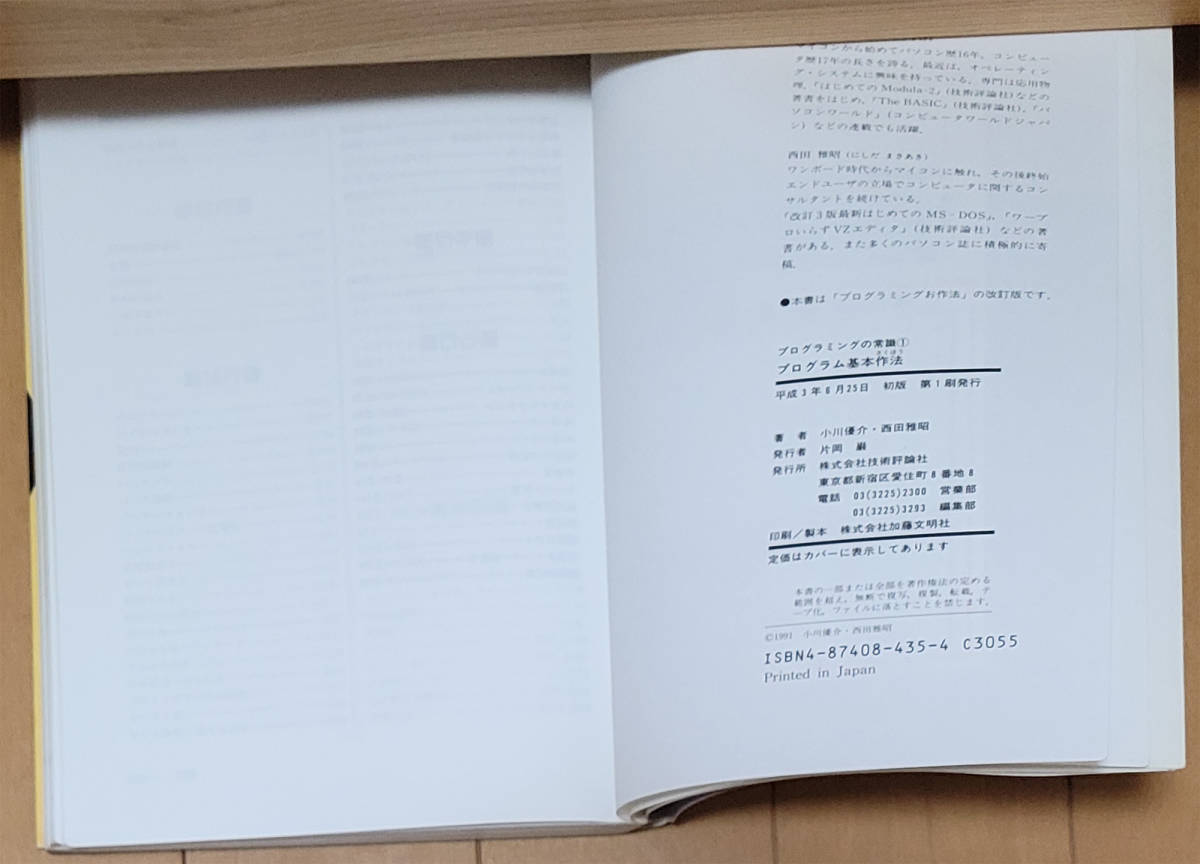 マイコンから始めてパソコン歴16年，コンピュー
タ歴17年の長さを誇る．最近は，オペレーティン
グ・システムに興味を持っている．専門は応用物
理．「はじめてのModula-2」(技術評論社)などの
著書をはじめ，「The BASIC」(技術評論社)，「パ
ソコンワールド」(コンピュータワールドジャパ
ン) などの連載でも活躍．
西田 雅昭 (にしだ まさあき)
ワンボード時代からマイコンに触れ，その後終始
エンドユーザの立場でコンピュータに関するコン
サルタントを続けている．
「改訂3版最新はじめてのMS-DOS」，「ワープ
ロいらずVZエディタ」(技術評論社) などの著
書がある．また多くのパソコン誌に積極的に寄
稿．
●本書は「プログラミングお作法」の改訂版です．
プログラミングの常識①
さくほう
プログラム基本作法
平成3年6月25日 初版 第1刷発行
著者 小川優介・西田雅昭
発行者 片岡 巌
発行所 株式会社技術評論社
東京都新宿区愛住町8番地8
電話 03(3225)2300 営業部
03(3225)3293 編集部
印刷／製本 株式会社加藤文明社
定価はカバーに表示してあります
本書の一部または全部を著作権法の定める
範囲を超え，無断で複写，複製，転載，テ
ープ化，ファイルに落とすことを禁じます．
©1991 小川優介・西田雅昭
ISBN4-87408-435-4 C3055
Printed in Japan